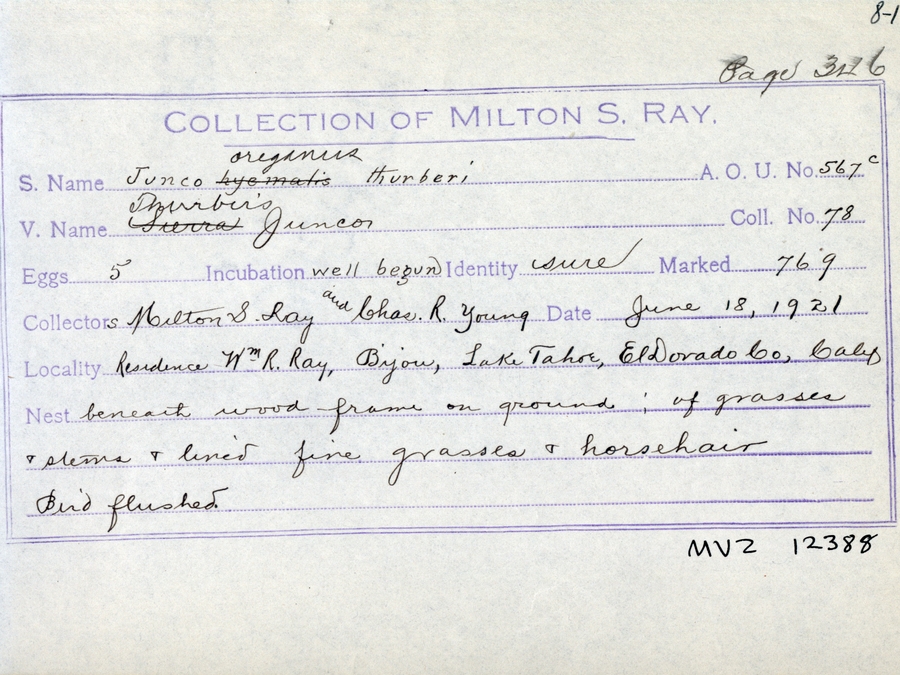 8-1
Page 346
COLLECTION OF MILTON S. RAY.
oreganus
S. Name Junco hyemalis thurberi A. O. U. No. 567c
Thurbers
V. Name Sierra Junco Coll. No. 78
Eggs 5 Incubation well begun Identity sure Marked 769
Collectors Milton S. Ray and Chas. R. Young Date June 18, 1921
Locality Residence Wm R. Ray, Bijou, Lake Tahoe, ElDorado Co, Calif
Nest beneath wood frame on ground ; of grasses
& stems & lined fine grasses & horsehair
Bird flushed.
MVZ 12388